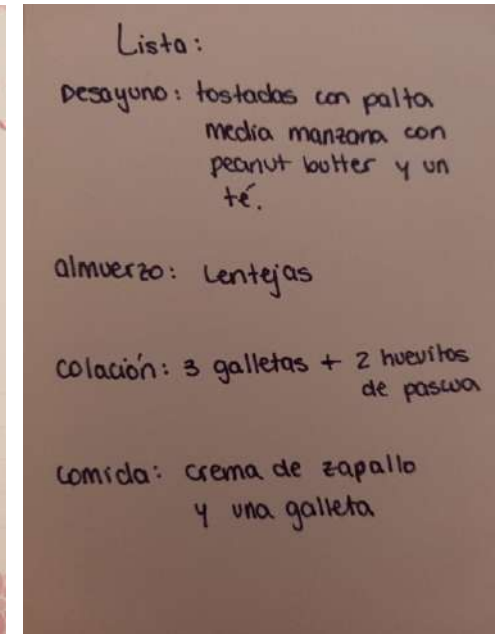 Lista:
Desayuno: tostadas con palta
media manzana con
peanut butter y un
té.
almuerzo: Lentejas
colación: 3 galletas + 2 huevitos
de pascua
comida: crema de zapallo
y una galleta